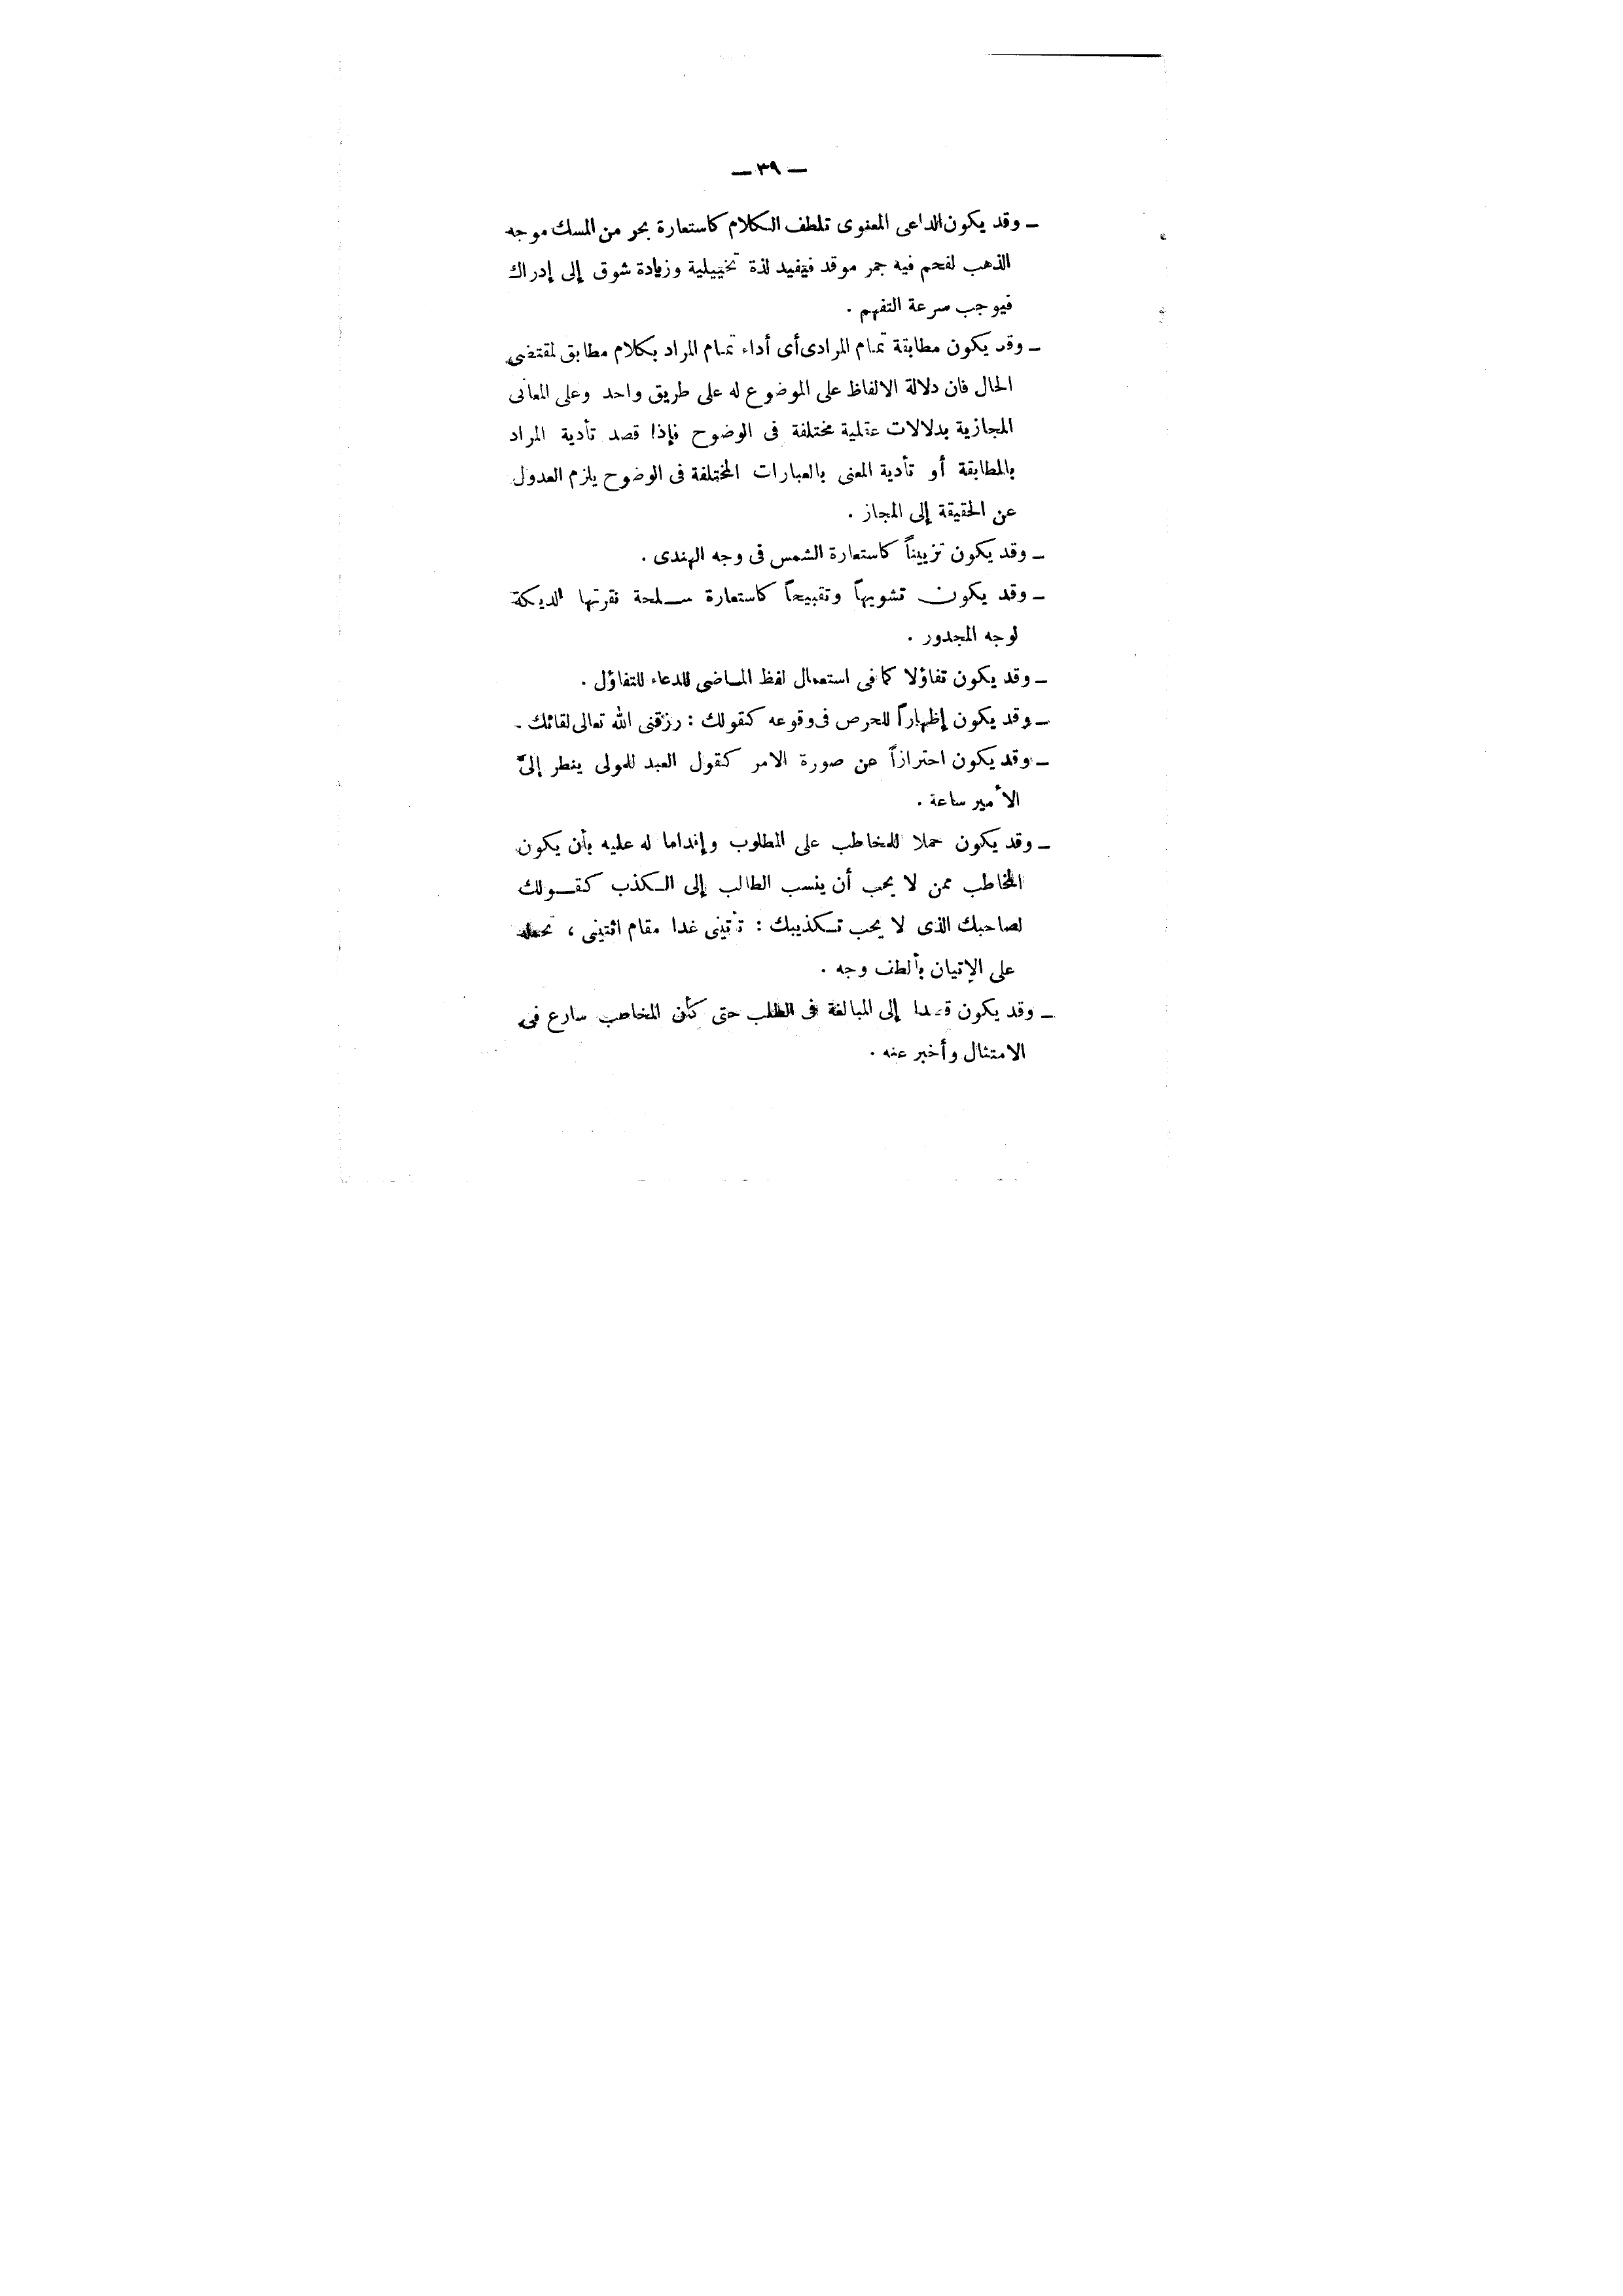 — ٣٩ —
— وقد يكون الداعى المعنوى تلطف الكلام كاستعارة بحر من المسك موجه
الذهب لفحم فيه جمر موقد فيفيد لذة تخييلية وزيادة شوق إلى إدراك
فيوجب سرعة التفهم .
— وقد يكون مطابقة تمام المرادى أى أداء تمام المراد بكلام مطابق لمقتضى
الحال فان دلالة الالفاظ على الموضوع له على طريق واحد وعلى المعانى
المجازية بدلالات عقلية مختلفة فى الوضوح فإذا قصد تأدية المراد
بالمطابقة أو تأدية المعنى بالعبارات المختلفة فى الوضوح يلزم العدول
عن الحقيقة إلى المجاز .
— وقد يكون تزييناً كاستعارة الشمس فى وجه الهندى .
— وقد يكون تشويهاً وتقبيحاً كاستعارة سلحة نقرتها الديكة
لوجه المجدور .
— وقد يكون تفاؤلا كما فى استعمال لفظ الماضى للدعاء للتفاؤل .
— وقد يكون إظهاراً للحرص فى وقوعه كقولك : رزقنى الله تعالى لقائك .
— وقد يكون احترازاً عن صورة الامر كقول العبد للمولى ينطر إلىّ
الأمير ساعة .
— وقد يكون حملا للمخاطب على المطلوب وإنداما له عليه بأن يكون
المخاطب ممن لا يحب أن ينسب الطالب إلى الكذب كقولك
لصاحبك الذى لا يحب تكذيبك : تأتينى غدا مقام ائتينى ، تحمله
على الإتيان بألطف وجه .
— وقد يكون قصدا إلى المبالغة فى الطلب حتى كأن المخاطب سارع فى
الامتثال وأخبر عنه .